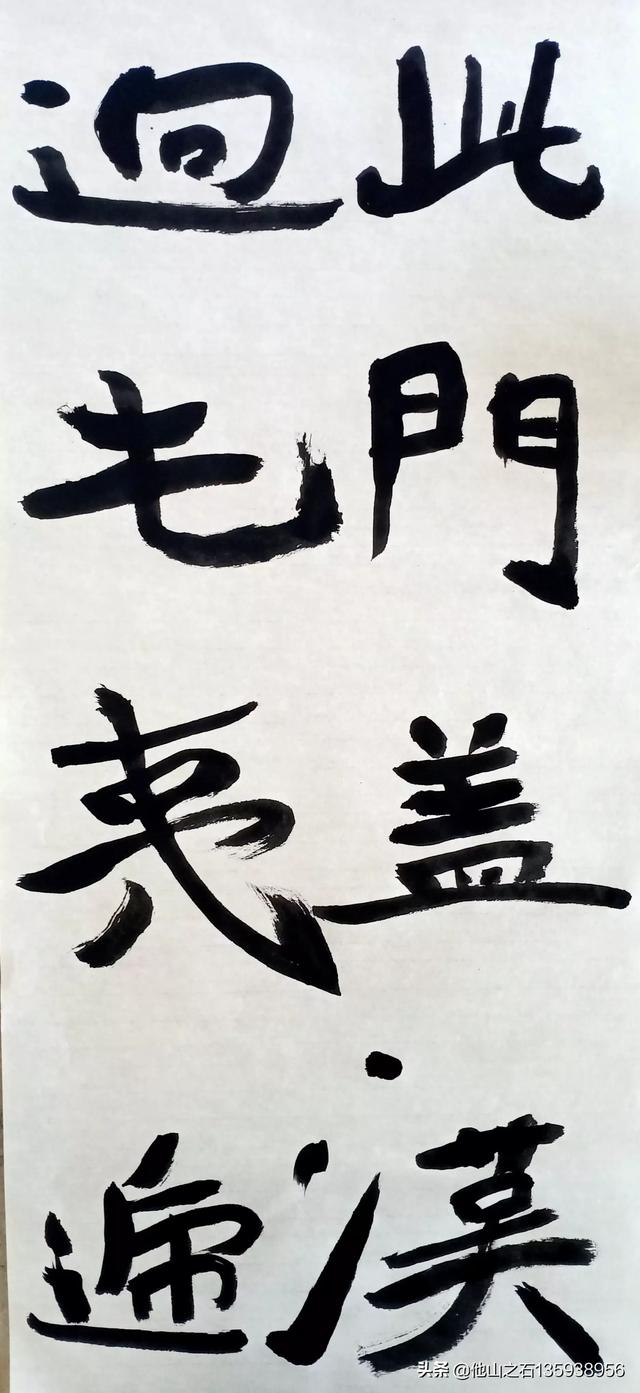 此門盖漢
迥屯夷遞
头条 @他山之石135938956